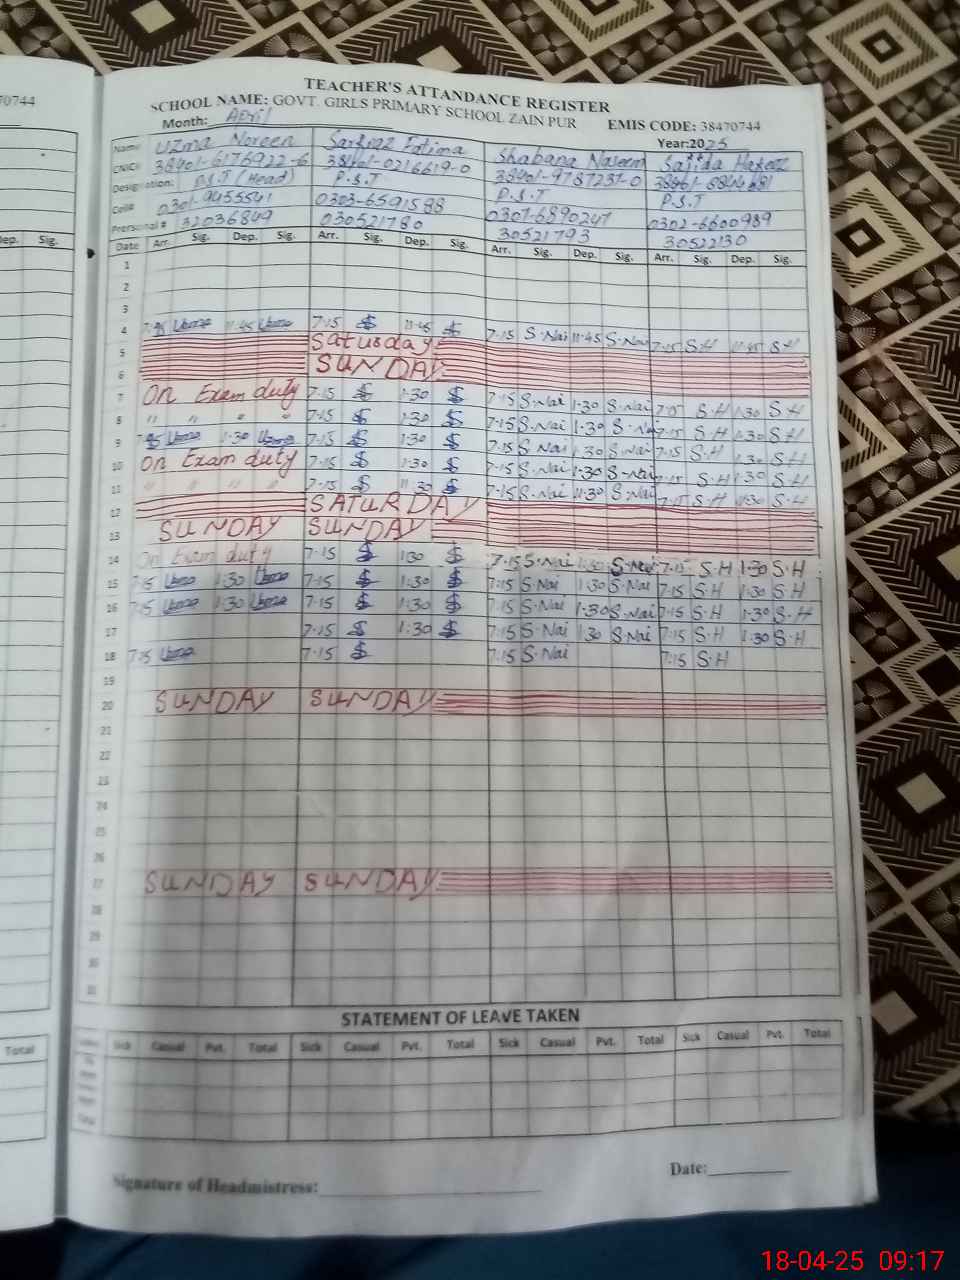 70744
TEACHER'S ATTANDANCE REGISTER
SCHOOL NAME: GOVT. GIRLS PRIMARY SCHOOL ZAIN PUR EMIS CODE: 38470744
Month: April Year:2025
Name Uzma Noreen Sarfraz Fatima Shabana Naseem Sajida Hafeez
CNIC# 38401-6176922-6 38401-0216619-0 38401-9787237-0
Designation: P.S.T (Head) P.S.T P.S.T P.S.T
Cell# 0301-9455541 0303-6591588 0307-6890247 0302-6600989
Prersonal # 32036849 30521780 30521793 30522130
Dep. Sig. Date Arr. Sig. Dep. Sig. Arr. Sig. Dep. Sig. Arr. Sig. Dep. Sig. Arr. Sig. Dep. Sig.
1
2
3
4 11:45 7:15 11:45 7:15 S.Nai 11:45 S.Nai 7:15 S.H 11:45 S.H
5 Saturday
6 SUNDAY
7 On Exam duty 7:15 1:30 7:15 S.Nai 1:30 S.Nai 7:15 S.H 1:30 S.H
8 " " " " 7:15 1:30 7:15 S.Nai 1:30 S.Nai 7:15 S.H 1:30 S.H
9 1:30 7:15 1:30 7:15 S.Nai 1:30 S.Nai 7:15 S.H 1:30 S.H
10 On Exam duty 7:15 1:30 7:15 S.Nai 1:30 S.Nai 7:15 S.H 1:30 S.H
11 " " " " 7:15 11:30 7:15 S.Nai 11:30 S.Nai 7:15 S.H 11:30 S.H
12 SATURDAY
13 SUNDAY SUNDAY
14 On Exam duty 7:15 1:30 7:15 S.Nai 1:30 S.Nai 7:15 S.H 1:30 S.H
15 7:15 1:30 7:15 1:30 7:15 S.Nai 1:30 S.Nai 7:15 S.H 1:30 S.H
16 7:15 1:30 7:15 1:30 7:15 S.Nai 1:30 S.Nai 7:15 S.H 1:30 S.H
17 7:15 1:30 7:15 S.Nai 1:30 S.Nai 7:15 S.H 1:30 S.H
18 7:15 7:15 7:15 S.Nai 7:15 S.H
19
20 SUNDAY SUNDAY
21
22
23
24
25
26
27 SUNDAY SUNDAY
28
29
30
31
STATEMENT OF LEAVE TAKEN
Total Sick Casual Pvt. Total Sick Casual Pvt. Total Sick Casual Pvt. Total Sick Casual Pvt. Total
Signature of Headmistress: Date:
18-04-25 09:17